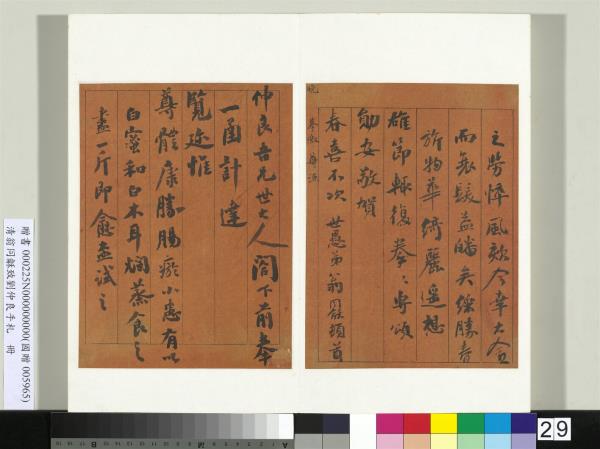 之勞悴風
今幸大
而
旂物華綺麗遙想
雄節輶復拳拳專頌
勛安敬賀
春喜不次 世愚弟翁同龢頓首
仲良吾兄世大人閣下前奉
一函計達
覽近惟
尊體康勝腸
小恙有以
白蜜和白木耳燜蒸食之
盡一斤即愈盍試之
贈書 000225N000000000(國贈 005965)
清翁同龢致劉仲良手札 冊
29